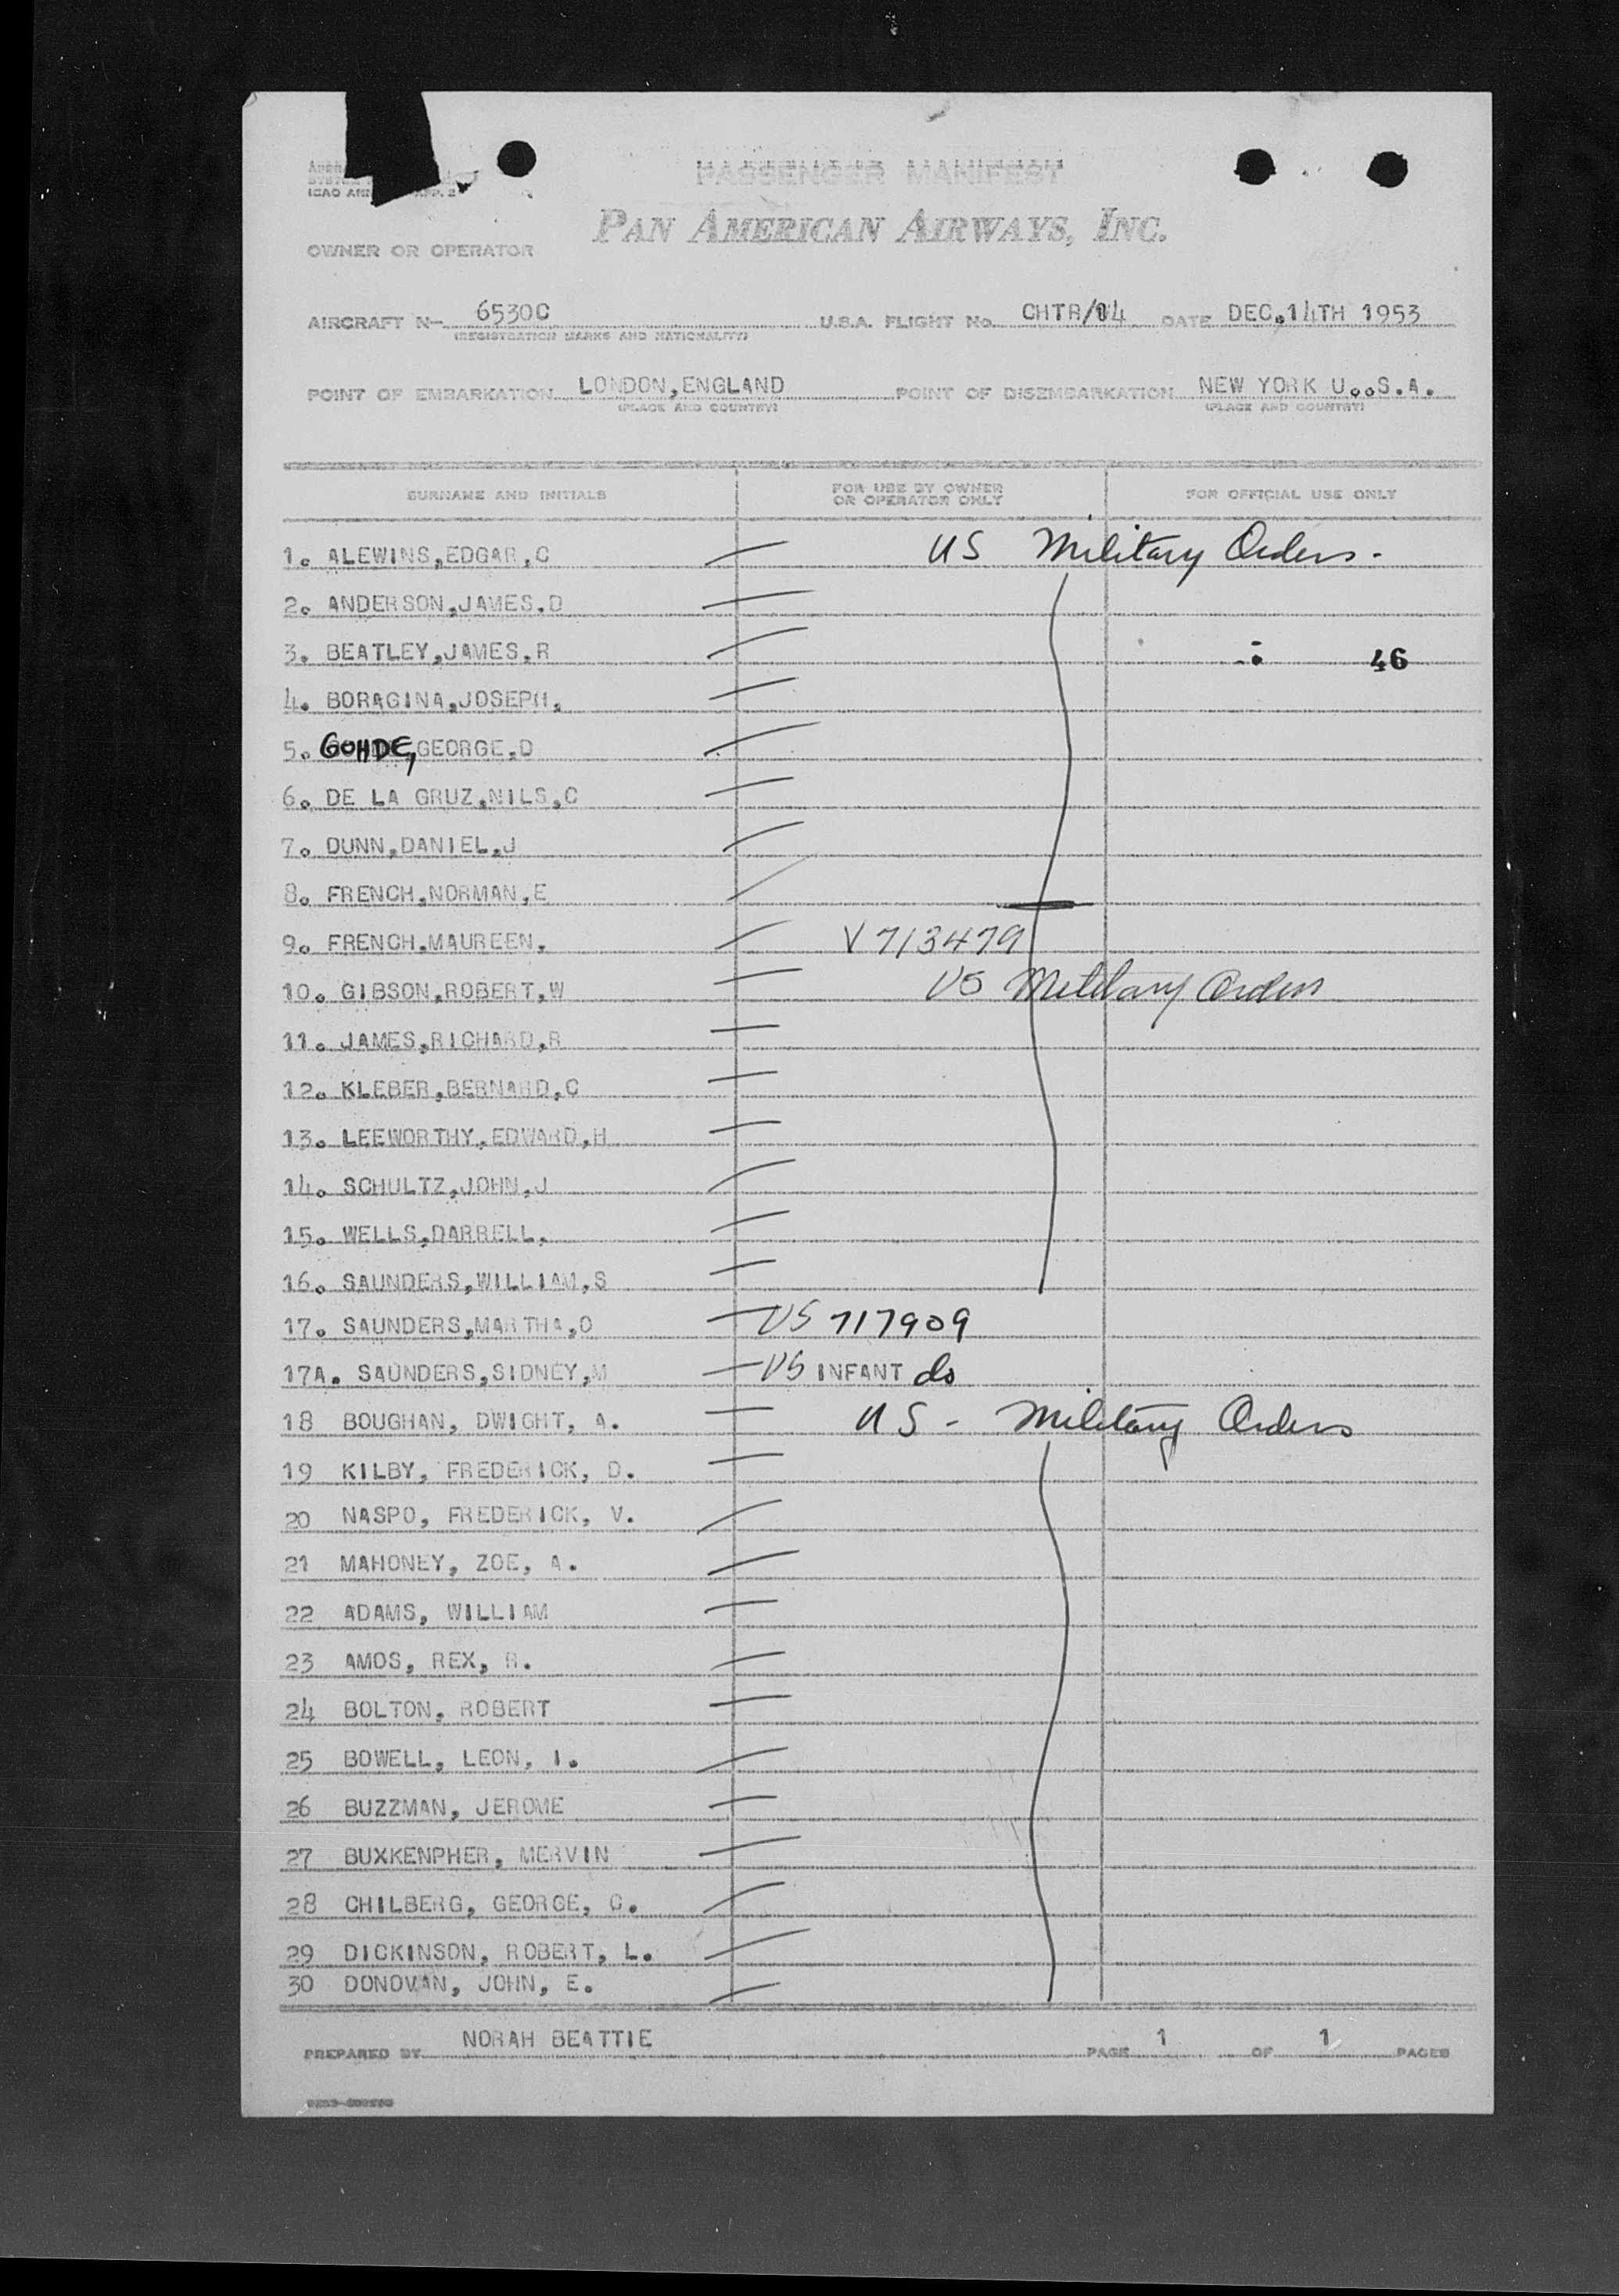 PASSENGER MANIFEST
PAN AMERICAN AIRWAYS, INC.
OWNER OR OPERATOR
AIRCRAFT N— 6530C U.S.A. FLIGHT No. CHTR/14 DATE DEC.14TH 1953
(REGISTRATION MARKS AND NATIONALITY)
POINT OF EMBARKATION LONDON,ENGLAND POINT OF DISEMBARKATION NEW YORK U..S.A.
(PLACE AND COUNTRY) (PLACE AND COUNTRY)
SURNAME AND INITIALS FOR USE BY OWNER OR OPERATOR ONLY FOR OFFICIAL USE ONLY
1. ALEWINS,EDGAR,C US Military Orders.
2. ANDERSON,JAMES.D
3. BEATLEY,JAMES.R 46
4. BORAGINA,JOSEPH,
5. GOHDE, GEORGE.D
6. DE LA GRUZ,NILS,C
7. DUNN,DANIEL,J
8. FRENCH,NORMAN,E
9. FRENCH.MAUREEN. V713479
10. GIBSON,ROBERT,W US Military Orders
11. JAMES,RICHARD,R
12. KLEBER,BERNARD,C
13. LEEWORTHY,EDWARD,H
14. SCHULTZ,JOHN,J
15. WELLS,DARRELL,
16. SAUNDERS,WILLIAM,S
17. SAUNDERS,MARTHA,O US 717909
17A. SAUNDERS,SIDNEY,M US INFANT do
18 BOUGHAN, DWIGHT, A. US - Military Orders
19 KILBY, FREDERICK, D.
20 NASPO, FREDERICK, V.
21 MAHONEY, ZOE, A.
22 ADAMS, WILLIAM
23 AMOS, REX, R.
24 BOLTON, ROBERT
25 BOWELL, LEON, I.
26 BUZZMAN, JEROME
27 BUXKENPHER, MERVIN
28 CHILBERG, GEORGE, C.
29 DICKINSON, ROBERT, L.
30 DONOVAN, JOHN, E.
PREPARED BY NORAH BEATTIE PAGE 1 OF 1 PAGES